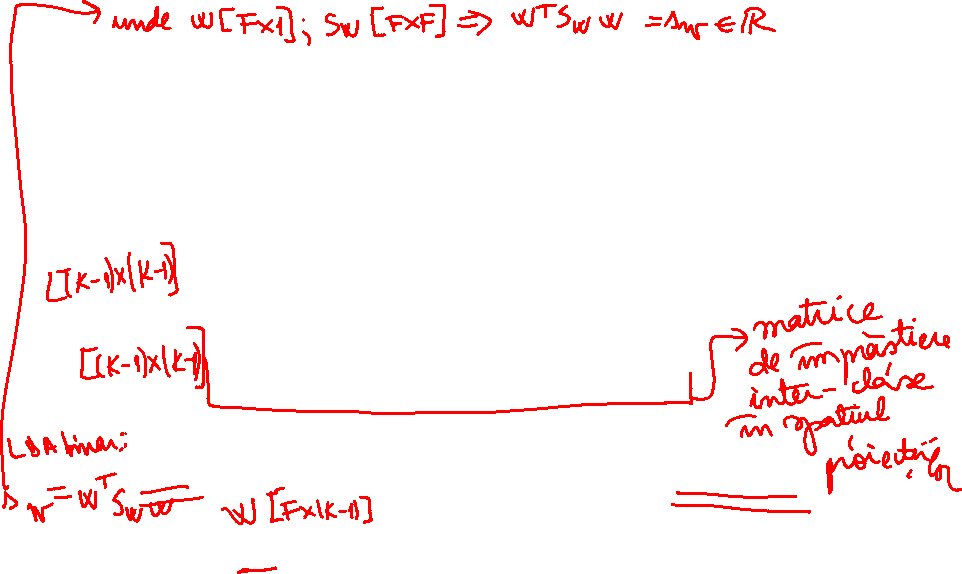 unde W[F×1]; S_W [F×F] => W^T S_W W = s_w ∈ ℝ
[(K-1)×(K-1)]
[(K-1)×(K-1)]
matrice
de împrăstiere
inter-clase
în spatiul
proiectiilor
LDA binar:
s_w = W^T S_W W
W [F×(K-1)]